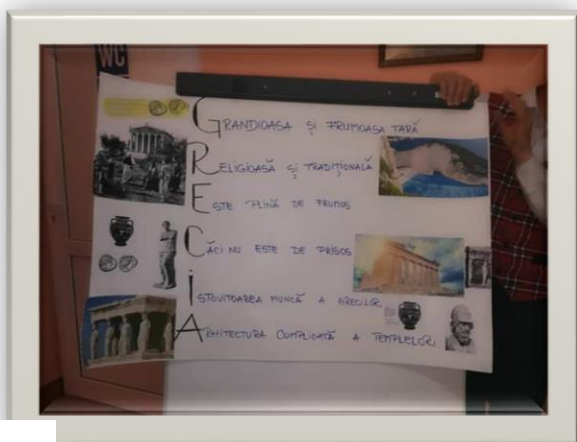 WC
GRANDIOASA ȘI FRUMOASA TARĂ
RELIGIOASĂ ȘI TRADIȚIONALĂ
ESTE PLINĂ DE FRUMOS
CĂCI NU ESTE DE PRISOS
ISTOVITOAREA MUNCĂ A GRECILOR
ARHITECTURA COMPLICATĂ A TEMPLELOR